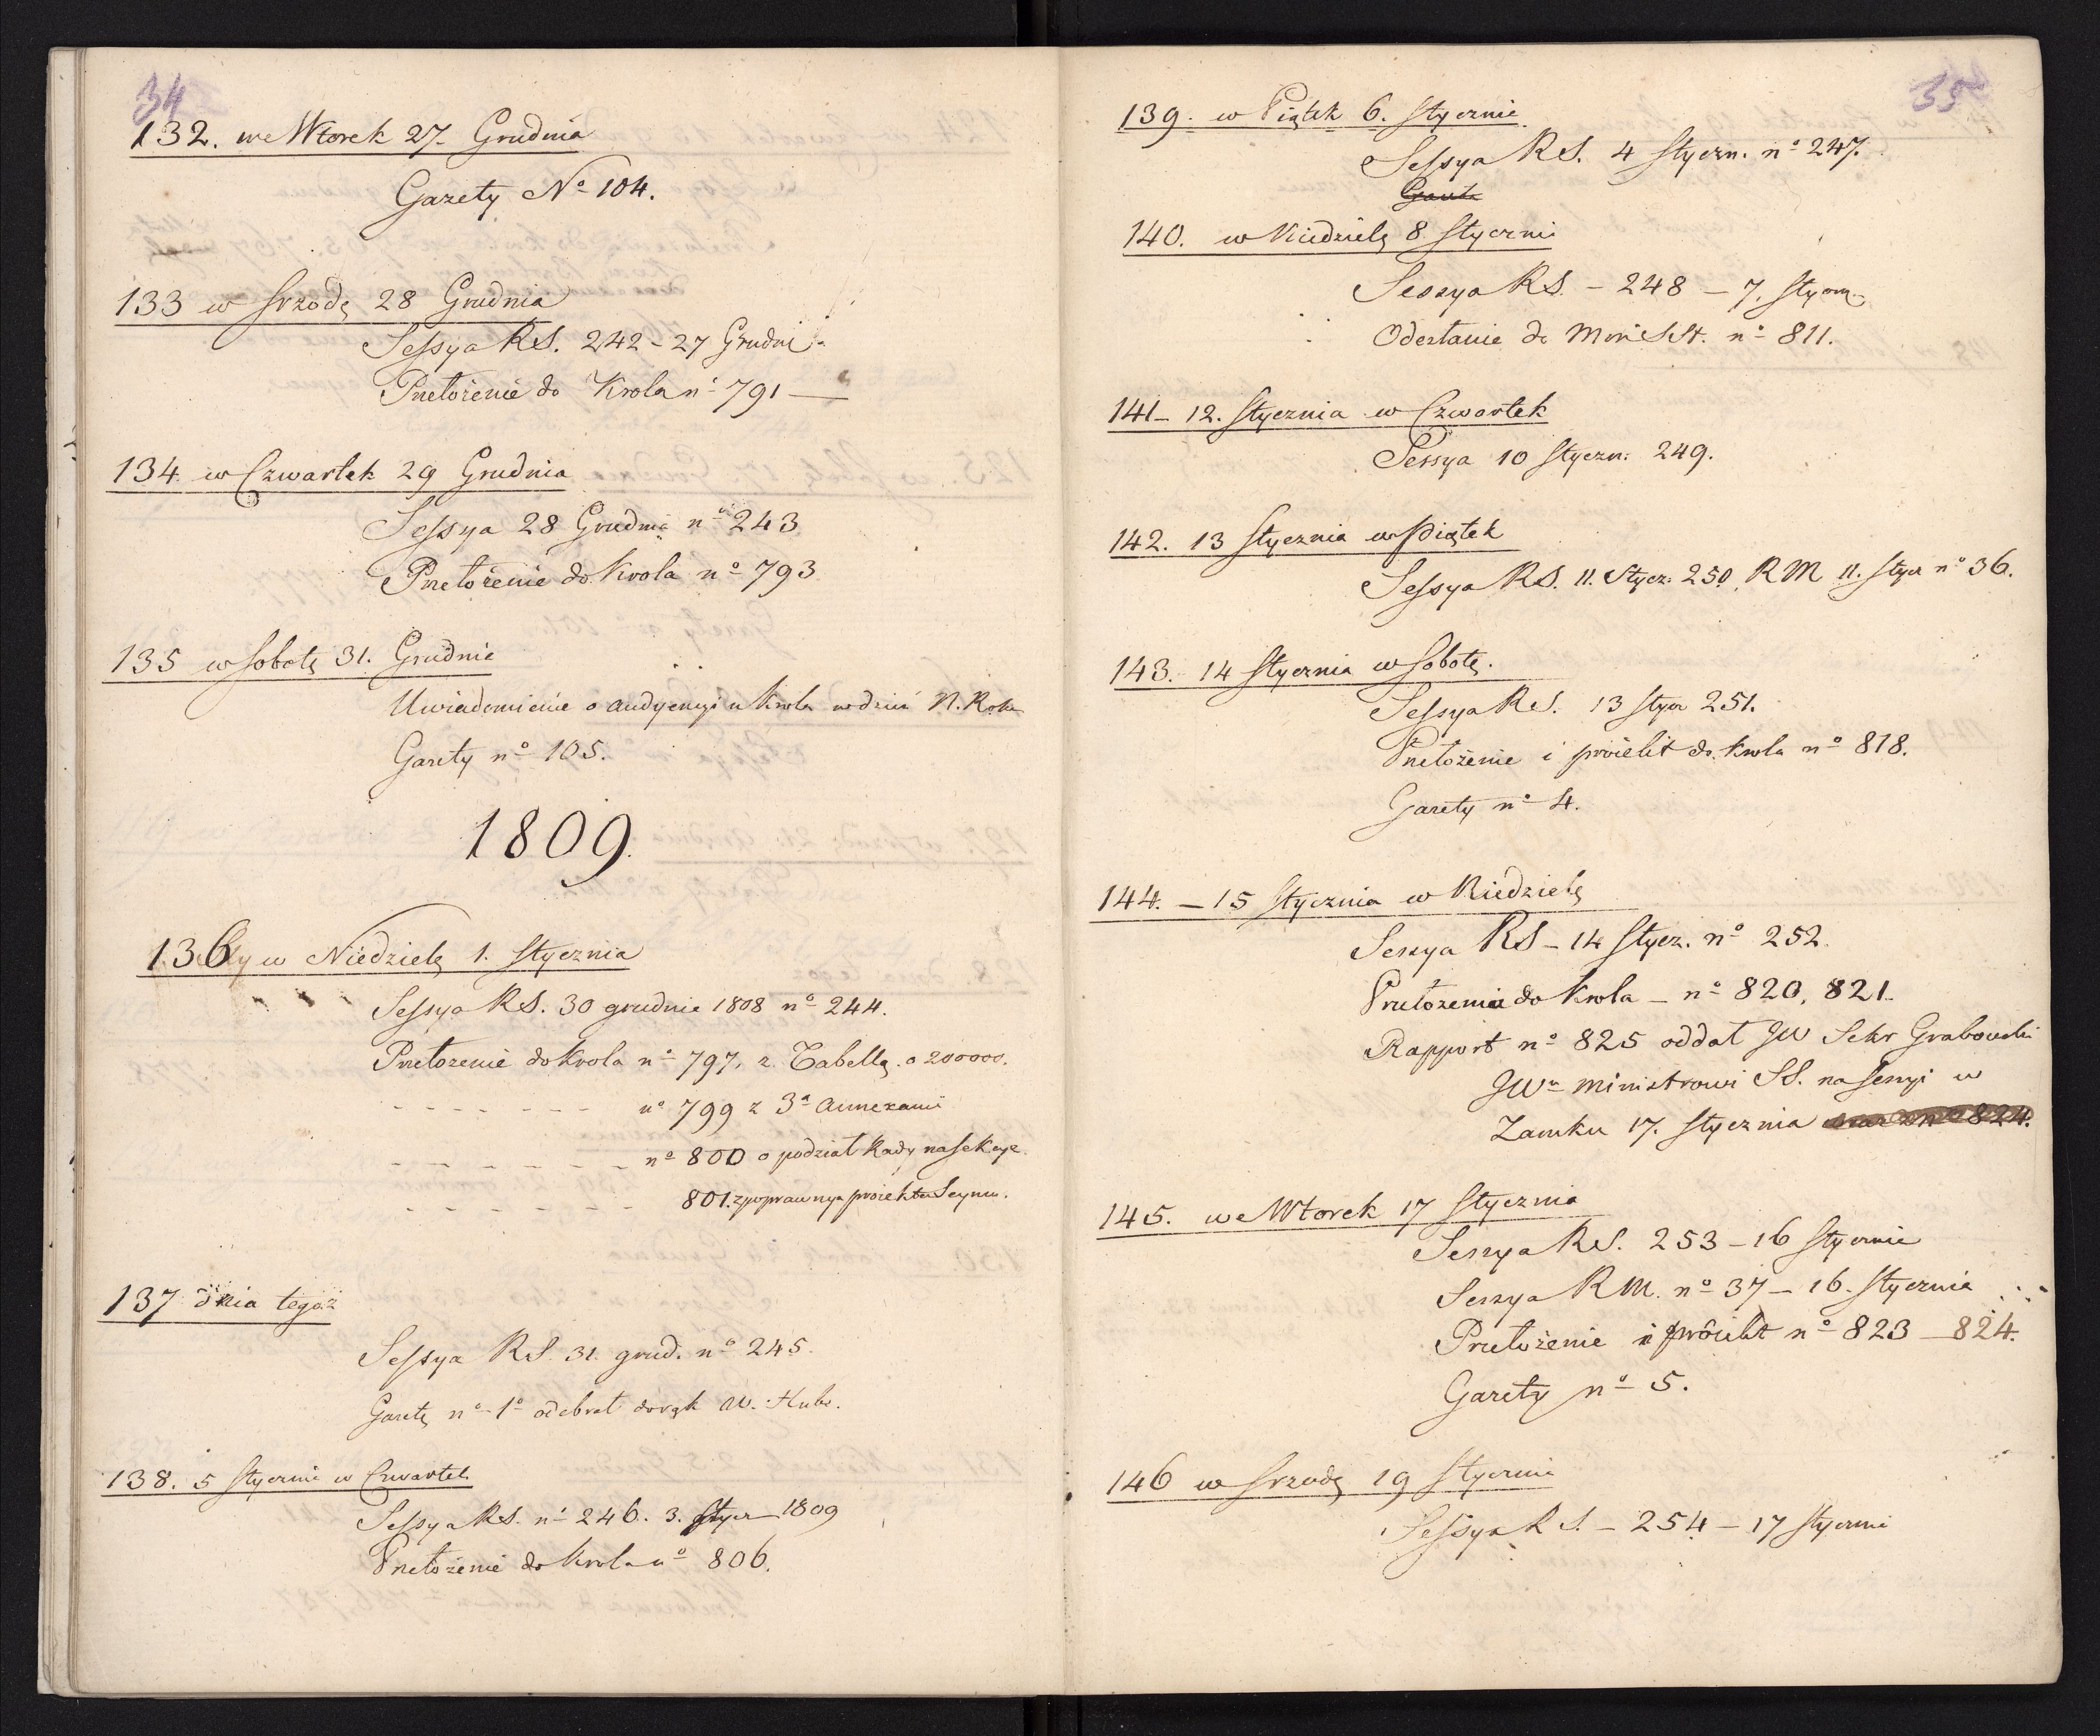 34
132. we Wtorek 27. Grudnia
Gazety No 104.
133 w Srzodę 28 Grudnia
Sessya RS. 242 - 27 Grudni
Przełożenie do Krola no 791 —
134. w Czwartek 29 Grudnia
Sessya 28 Grudnia no 243
Przełożenie do Krola no 793
135 w Sobotę 31. Grudnia
Uwiadomienie o audyencyi u Krola w dzień N. Roku
Gazety no 105.
1809.
136 w Niedzielę 1. Stycznia
Sessya RS. 30 grudnia 1808 no 244.
Przełozenie do Krola no 797. z Tabellą. o 200000.
- - - - - - - no 799 z 3a annexami
- - - - - - - no 800 o podział Rady na Sekcye.
- - - - - - - 801. z poprawnym proiektem Seymu.
137 dnia tegoż
Sessya RS. 31. grud. no 245.
Gazetę no 1o odebrał do rąk W. Hube.
138. 5 Stycznia w Czwartek
Sessya RS. no 246. 3. Stycz 1809
Przełożenie do Krola no 806.
35
139. w Piątek 6. Stycznia
Sessya RS. 4 Styczn. no 247.
Gazeta
140. w Niedzielę 8 Stycznia
Sessya RS. - 248 - 7. Styczn
Odesłanie do Min SSt. no 811.
141 - 12. Stycznia w Czwartek
Sessya 10 Styczn. 249.
142. 13 Stycznia w Piątek
Sessya RS. 11. Stycz. 250, RM 11. Stycz no 36.
143. 14 Stycznia w Sobotę.
Sessya RS. 13 Stycz 251.
Przełożenie i proiekt do Krola no 818.
Gazety no 4.
144. - 15 Stycznia w Niedzielę
Sessya RS - 14 Stycz. no 252.
Przełozenia do Krola - no 820, 821.
Rapport no 825 oddał JW Sekr Grabowski
JWu ministrowi SS. na Sessyi w
Zamku 17. Stycznia 824.
145. we Wtorek 17 Stycznia
Sessya RS. 253 - 16 Stycznia
Sessya RM. no 37 - 16. Stycznia
Przełożenie i proiekt no 823 - 824.
Gazety no 5.
146 w Srzodę 19 Stycznia
Sessya RS. - 254 - 17 Stycznia